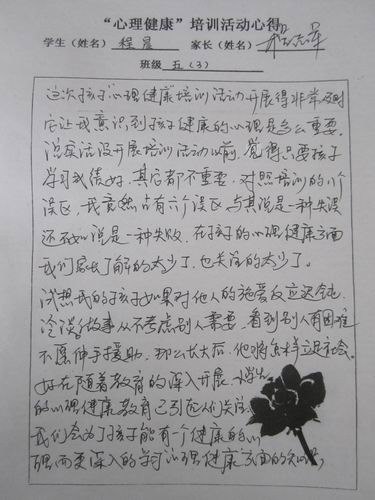 “心理健康”培训活动心得
学生（姓名） 程晨 家长（姓名）
班级 五（3）
这次孩子“心理健康”培训活动开展得非常及时
它让我意识到孩子健康的心理是多么重要。
说实话没开展培训活动以前，觉得只要孩子
学习成绩好，其它都不重要，对照培训的八个
误区，我竟然占有六个误区与其说是一种失误
还不如说是一种失败，在孩子的心理健康方面
我们家长了解的太少了，也关注的太少了。
试想我的孩子如果对他人的施爱反应迟钝，
冷淡，做事从不考虑别人需要，看到别人有困难
不愿伸手援助，那么长大后，他将怎样立足社会。
好在随着教育的深入开展，小学生
的心理健康教育已引起人们关注。
我们会为了孩子能有一个健康的心
理而更深入的学习心理健康方面的知识